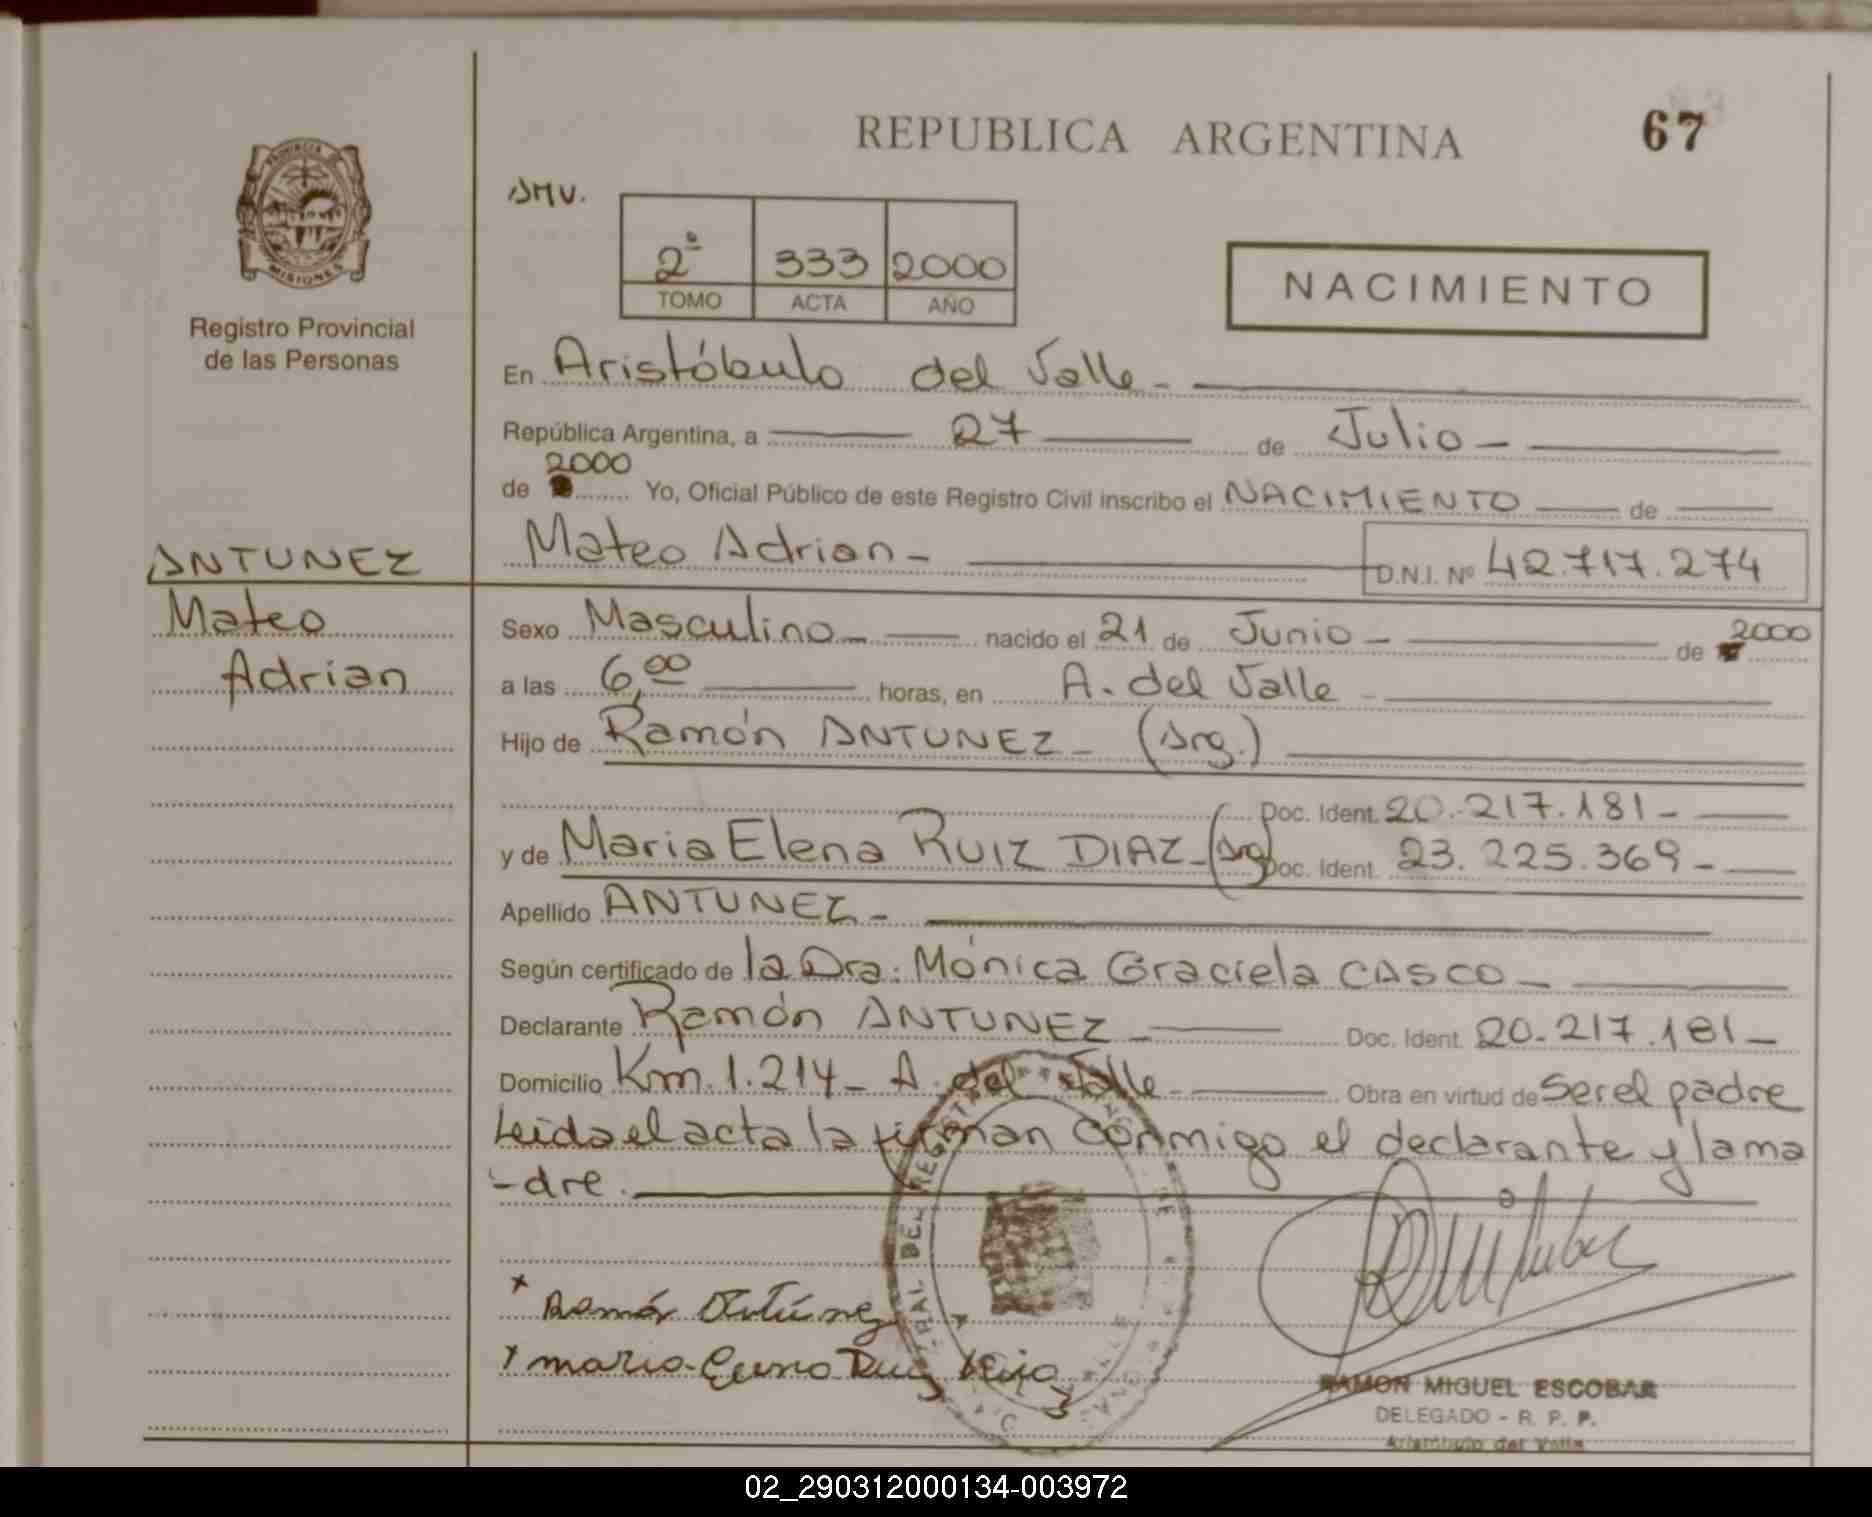 REPUBLICA ARGENTINA
67
PROVINCIA DE
MISIONES
Registro Provincial
de las Personas
AMV.
2º 333 2000
TOMO ACTA AÑO
NACIMIENTO
En Aristóbulo del Valle -
República Argentina, a 27 de Julio -
2000
de Yo, Oficial Público de este Registro Civil inscribo el NACIMIENTO de
ANTUNEZ
Mateo
Adrian
Mateo Adrian - D.N.I. Nº 42.717.274
Sexo Masculino - nacido el 21 de Junio - de 2000
a las 6,00 horas, en A. del Valle -
Hijo de Ramón ANTUNEZ - (Arg.)
Doc. Ident. 20.217.181 -
y de Maria Elena RUIZ DIAZ - (Arg) Doc. Ident. 23.225.369 -
Apellido ANTUNEZ -
Según certificado de la Dra. Mónica Graciela CASCO -
Declarante Ramón ANTUNEZ - Doc. Ident. 20.217.181 -
Domicilio Km. 1.214 - A. del Valle - Obra en virtud de ser el padre
Leida el acta la firman conmigo el declarante y la ma
-dre.
x Ramón Antúnez
x
RAMON MIGUEL ESCOBAR
DELEGADO - R. P. P.
Aristóbulo del Valle
02_290312000134-003972